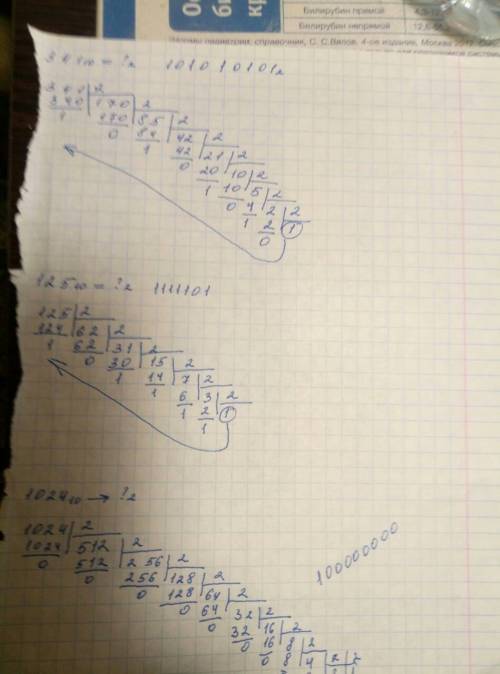 Билирубин прямой
Билирубин непрямой
341₁₀ = ?₂ 101010101₂
341 2
340 170 2
1 170 85 2
0 84 42 2
1 42 21 2
0 20 10 2
1 10 5 2
0 4 2 2
1 2 1
0
125₁₀ = ?₂ 1111101
125 2
124 62 2
1 62 31 2
0 30 15 2
1 14 7 2
1 6 3 2
1 2 1
1
1024₁₀ → ?₂
1024 2
1024 512 2
0 512 256 2
0 256 128 2
0 128 64 2
0 64 32 2
0 32 16 2
0 16 8 2
0 8 4 2 2
100000000